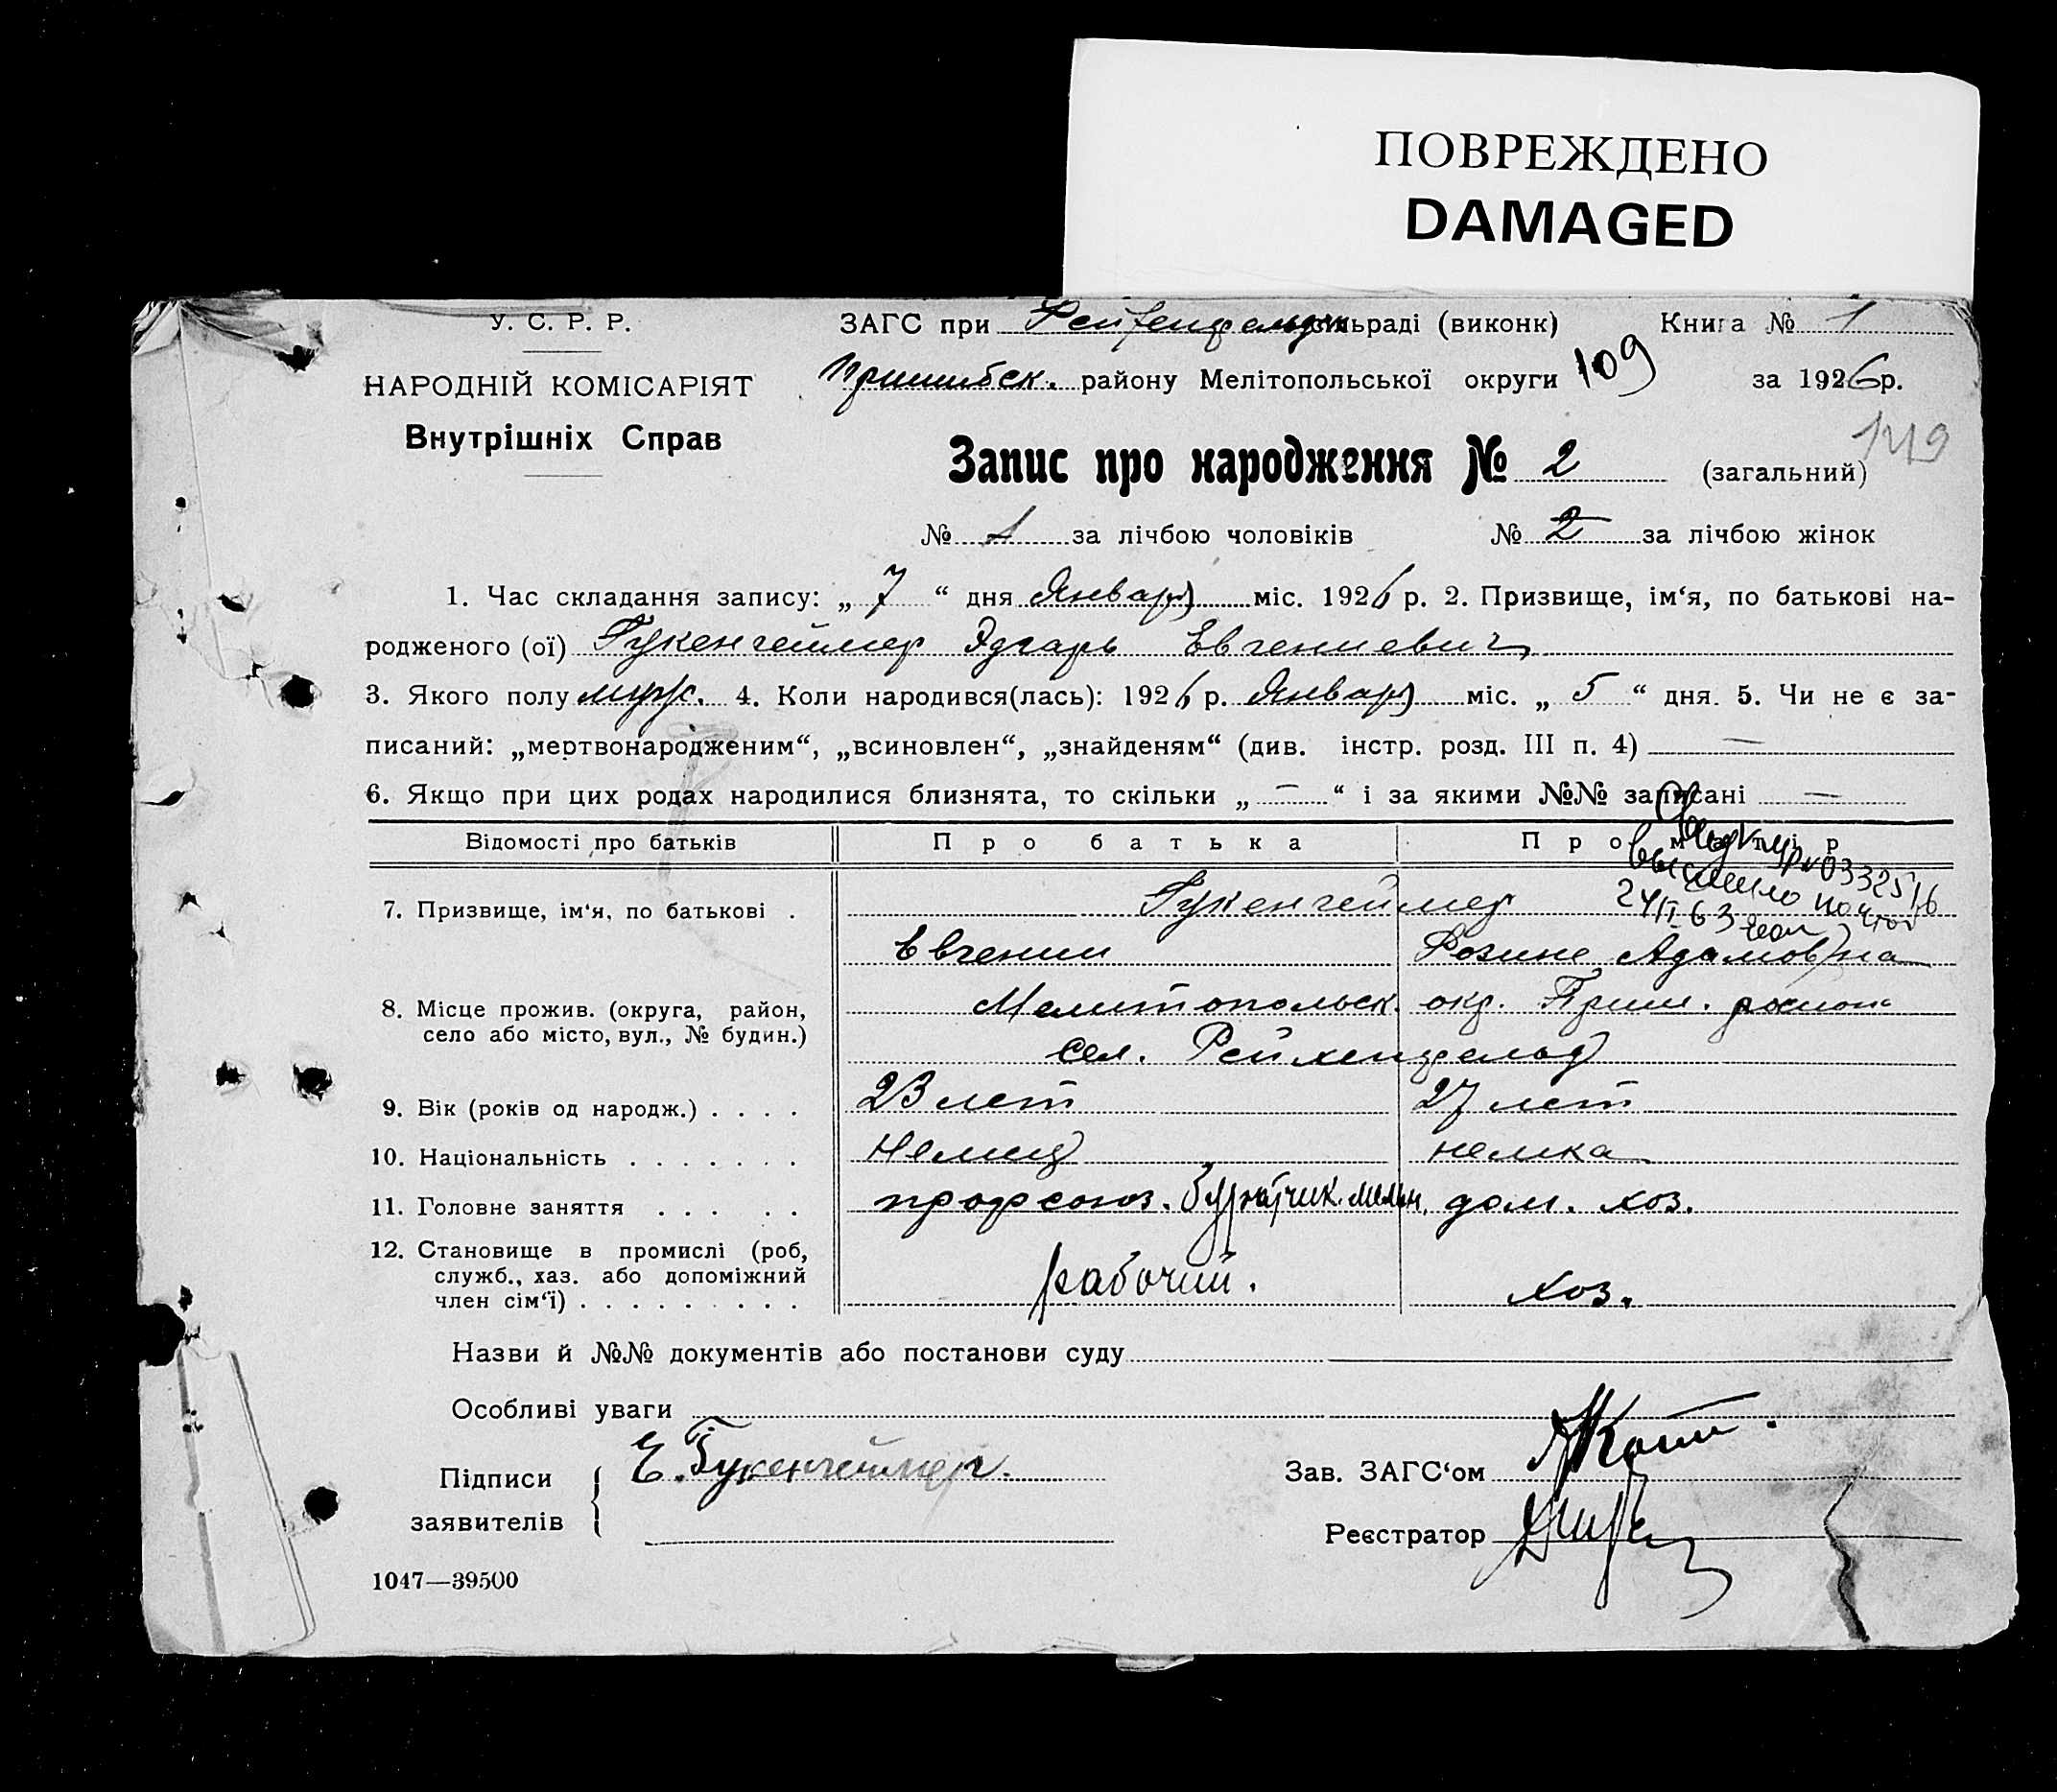 ПОВРЕЖДЕНО
DAMAGED
У. С. Р. Р.
НАРОДНІЙ КОМІСАРІЯТ
Внутрішніх Справ
ЗАГС при сільраді (виконк) Книга № 1
Пришибск. району Мелітопольської округи 109 за 1926 р.
149
Запис про народження № 2 (загальний)
№ 1 за лічбою чоловіків № 2 за лічбою жінок
1. Час складання запису: „ 7 “ дня Января міс. 1926 р. 2. Призвище, ім‘я, по батькові на-
родженого (ої) Гукенгеймер Эдгарь Евгениевич
3. Якого полу муж. 4. Коли народився(лась): 1926 р. Января міс. „ 5 “ дня. 5. Чи не є за-
писаний: „мертвонародженим“, „всиновлен“, „знайденям“ (див. інстр. розд. III п. 4) —
6. Якщо при цих родах народилися близнята, то скільки „ — “ і за якими №№ записані —
Відомості про батьків Про батька Про матір
выслано почтой
24/II 63
7. Призвище, ім‘я, по батькові . Гукенгеймер
Евгении Розине Адамовна
8. Місце прожив. (округа, район, село або місто, вул., № будин.) Мелитопольск. окр. Приш. района
сел. Рейхенфельд
9. Вік (років од народж.) . . . . 23 лет 27 лет
10. Національність . . . . . . . Немец немка
11. Головне заняття . . . . . профсоюз. мельн. дом. хоз.
12. Становище в промислі (роб,
служб., хаз. або допоміжний
член сім‘ї) . . . . . . . . . рабочий. хоз.
Назви й №№ документів або постанови суду
Особливі уваги
Підписи
заявителів
Е. Гукенгеймер.
Зав. ЗАГС‘ом
Реєстратор
1047—39500